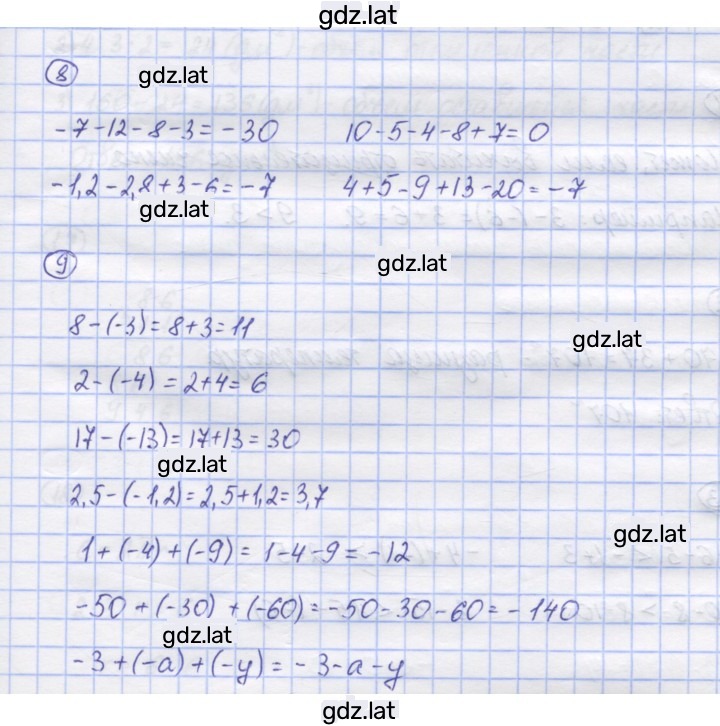 gdz.lat
8
gdz.lat
-7-12-8-3=-30 10-5-4-8+7=0
-1,2-2,8+3-6=-7 4+5-9+13-20=-7
gdz.lat
9
gdz.lat
8-(-3)=8+3=11
gdz.lat
2-(-4)=2+4=6
17-(-13)=17+13=30
gdz.lat
2,5-(-1,2)=2,5+1,2=3,7
gdz.lat
1+(-4)+(-9)=1-4-9=-12
-50+(-30)+(-60)=-50-30-60=-140
gdz.lat
-3+(-a)+(-y)=-3-a-y
gdz.lat